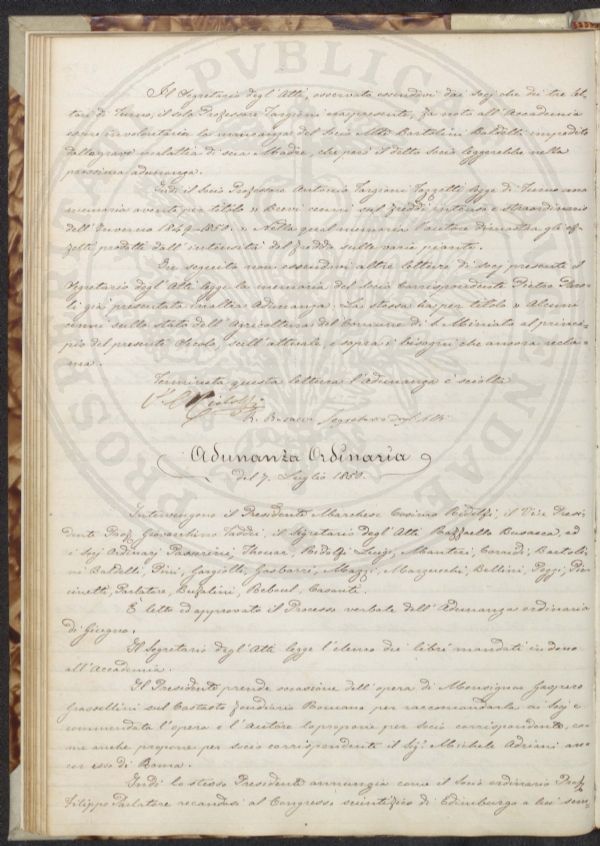 Il Segretario degl'Atti, osservato essendovi dai Socj che dei tre Let-
tori di Turno, il solo Professore Targioni era presente, fa noto all'Accademia
essere involontaria la mancanza del Socio March. Bartolini Baldelli impedito
dalla grave malattia di sua Madre, che però il detto Socio leggerebbe nella
prossima adunanza.
Indi il Socio Professore Antonio Targioni Tozzetti legge di Turno una
memoria avente per titolo » Brevi cenni sul freddo intenso e straordinario
dell'Inverno 1849-1850. » Nella qual memoria l'autore dimostra gli ef-
fetti prodotti dall'intensità del freddo sulle varie piante.
In seguito non essendovi altre letture di Socj presenti il
Segretario degl'Atti legge la memoria del Socio Corrispondente Pietro
già presentata in altra Adunanza. La stessa ha per titolo » Alcuni
cenni sullo stato dell'Agricoltura del Comune di S. Miniato al princi-
pio del presente Secolo, sull'attuale, e sopra i bisogni che ancora recla-
ma.
Terminata questa lettura l'adunanza è sciolta
R. Busacca Segretario degl'Atti
Adunanza Ordinaria
del 7. Luglio 1850.
Intervengono il Presidente Marchese Cosimo Ridolfi, il Vice Presi-
dente Prof. Giovacchino Taddei, il Segretario degl'Atti Raffaello Busacca, ed
i Socj Ordinarj Passerini, Thouar, Ridolfi Luigi, Mannteri, Corridi, Bartoli-
ni Baldelli, Pini, Gargiolli, Gasbarri, Magj, Marzucchi, Bellini, Poggi, Pier-
cinetti, Parlatore, Bufalini, Reboul, Casanti.
È letto ed approvato il Processo verbale dell'Adunanza ordinaria
di Giugno.
Il Segretario degl'Atti legge l'elenco dei libri mandati in dono
all'Accademia.
Il Presidente prende occasione dell'opera di Monsignor Gaspero
Grassellini sul Catasto fondiario Romano per raccomandarla ai Socj e
commendata l'opera e l'Autore lo propone per socio corrispondente, co-
me anche propone per socio corrispondente il Sig. Michele Adriani an-
cor esso di Roma.
Indi lo stesso Presidente annunzia come il Socio ordinario Prof.
Filippo Parlatore recandosi al Congresso scientifico di Edimburgo